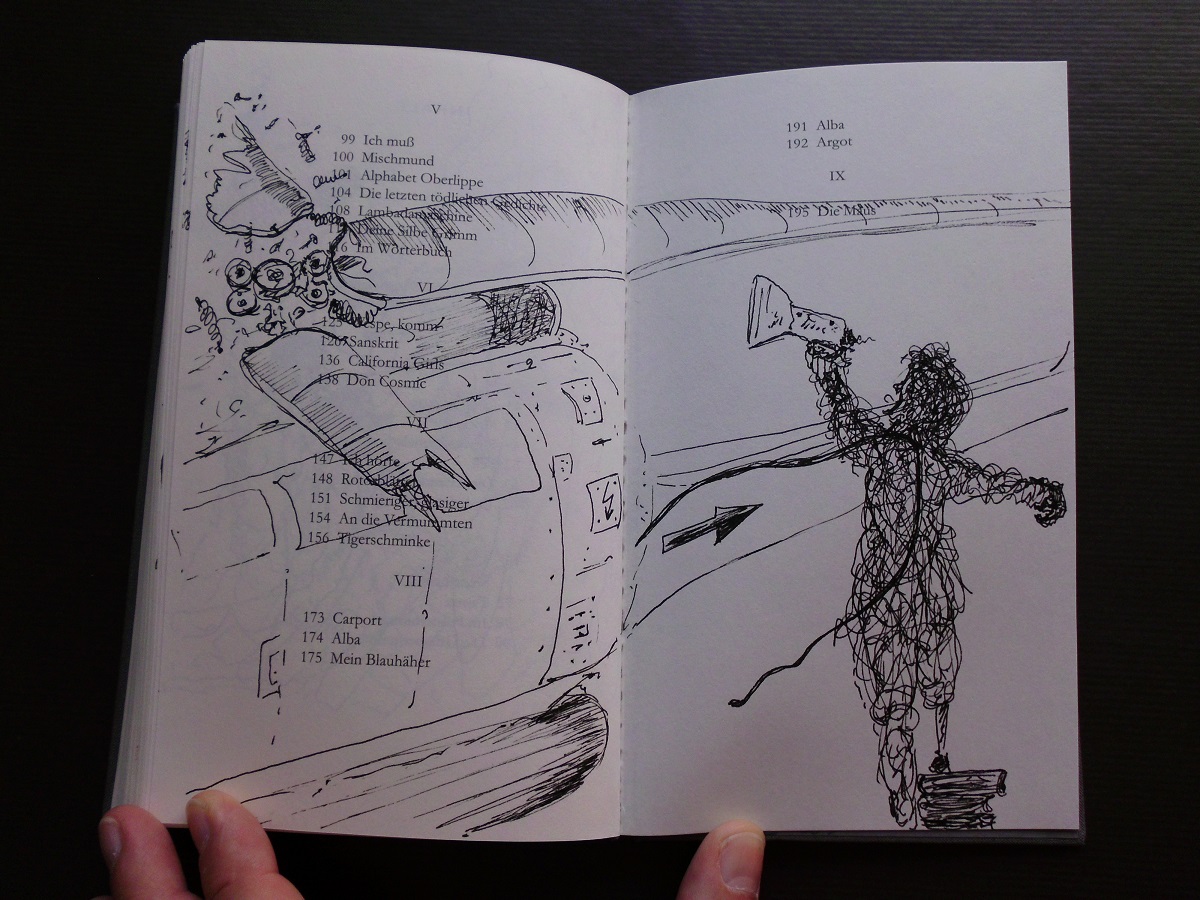 V
99 Ich muß
100 Mischmund
Alphabet Oberlippe
104 Die letzten tödlichen Gedichte
108 Lambadamaschine
Deine Silbe Grimm
Im Wörterbuch
VI
125 komm
126 Sanskrit
136 California Girls
138 Don Cosmic
VII
147 Ich hörte
148 Rotes
151 Schmieriger, glasiger
154 An die Vermummten
156 Tigerschminke
VIII
173 Carport
174 Alba
175 Mein Blauhäher
191 Alba
192 Argot
IX
195 Die Maus